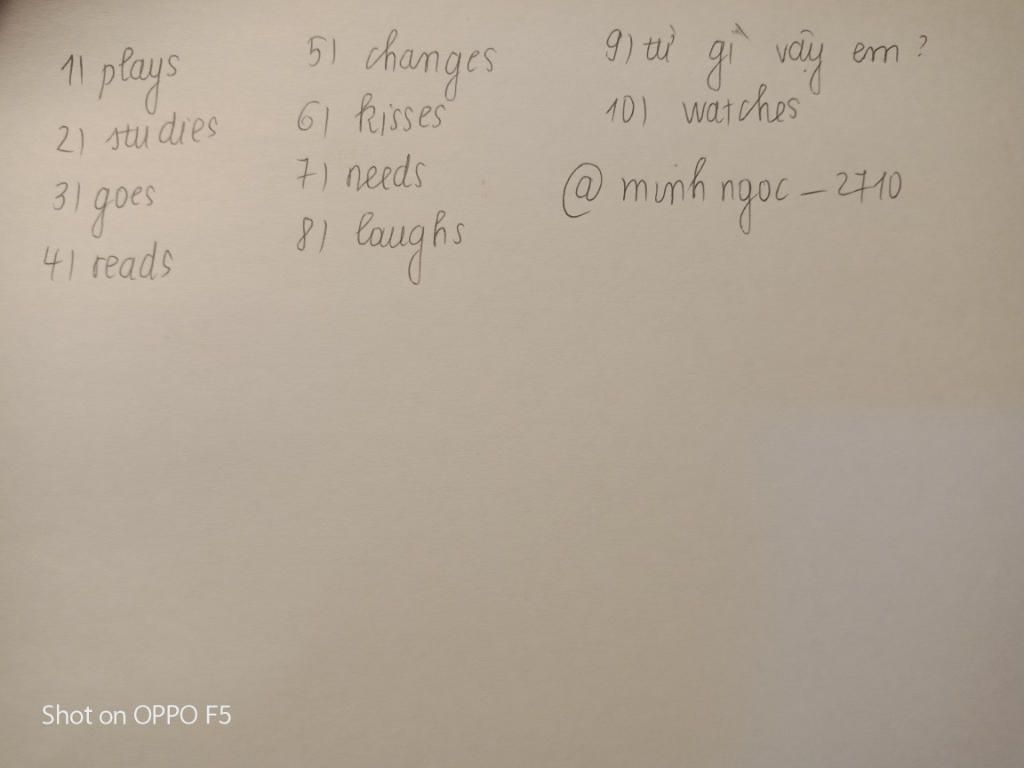 1) plays
2) studies
3) goes
4) reads
5) changes
6) kisses
7) needs
8) laughs
9) từ gì vậy em ?
10) watches
@ minh ngoc _ 2710
Shot on OPPO F5